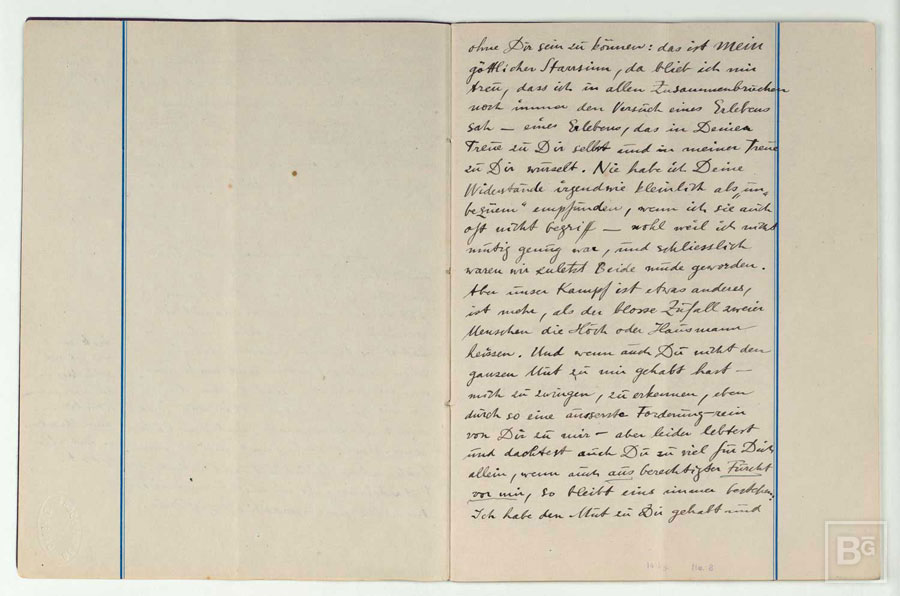 ohne Dir sein zu können: das ist mein
göttlicher Starrsinn, da blieb ich mir
treu, dass ich in allen Zusammenbrüchen
noch immer den Versuch eines Erlebens
sah – eines Erlebens, das in Deiner
Treue zu Dir selbst und in meiner Treue
zu Dir wurzelt. Nie habe ich Deine
Widerstände irgendwie kleinlich als „un-
bequem“ empfunden, wenn ich sie auch
oft nicht begriff – wohl weil ich nicht
mutig genug war, und schliesslich
waren wir zuletzt Beide müde geworden.
Aber unser Kampf ist etwas anderes,
ist mehr, als der blosse Zufall zweier
Menschen die Höch oder Hausmann
heissen. Und wenn auch Du nicht den
ganzen Mut zu mir gehabt hast –
mich zu zwingen, zu erkennen, eben
durch so eine äusserste Forderung rein
von Dir zu mir – aber leider lebtest
und dachtest auch Du zu viel für Dich
allein, wenn auch aus berechtigter Furcht
vor mir, so bleibt eins immer bestehen:
Ich habe den Mut zu Dir gehabt und
BG